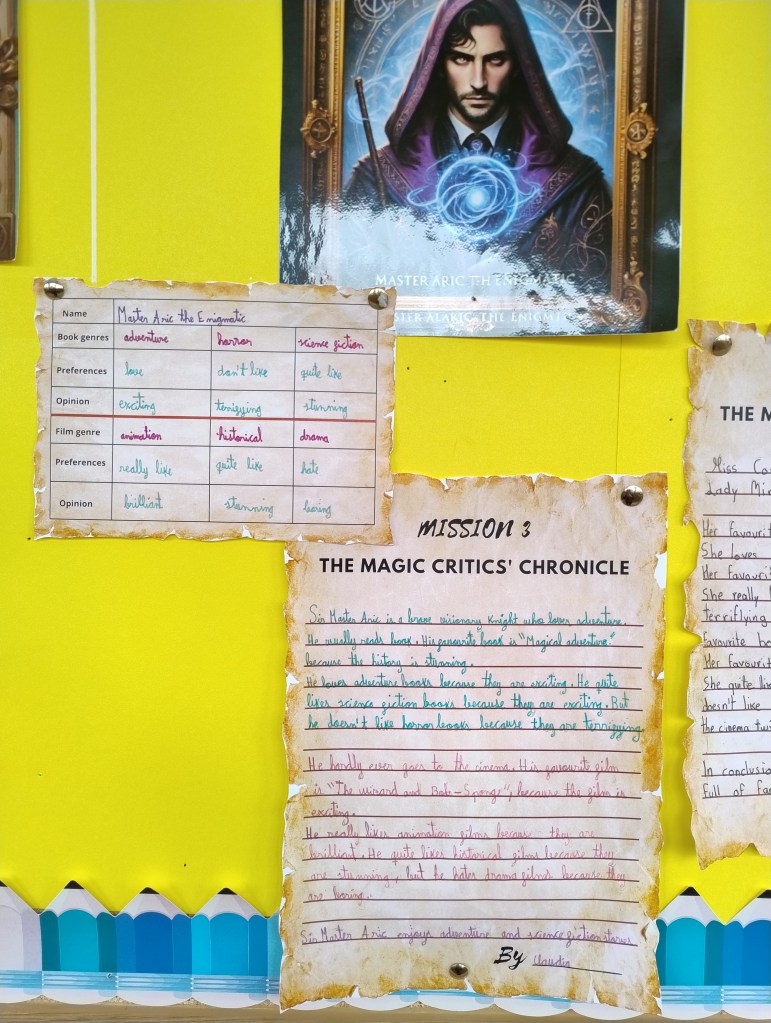 MASTER ARIC TH ENIGMATIC
STER ALARIC, THE ENIGM
Name Master Aric the Enigmatic
Book genres adventure horror science fiction
Preferences love don't like quite like
Opinion exciting terrizying stunning
Film genre animation historical drama
Preferences really like quite like hate
Opinion brilliant stunning boring
MISSION 3
THE MAGIC CRITICS' CHRONICLE
Sir Master Aric is a brave visionary Knight who loves adventure.
He usually reads book. His favourite book is "Magical adventure."
because the history is stunning.
He loves adventure books because they are exciting. He quite
likes science fiction books because they are exciting. But
he doesn't like horror books because they are terrizying
He hardly ever goes to the cinema. His favourite film
is "The wizard and Bob-Sponge", because the film is
exciting.
He really likes animation films because they are
brilliant. He quite likes historical films because they
are stunning, but he hates drama films because they
are boring.
Sir Master Aric enjoys adventure and science fiction stories
By
THE M
Miss Ca
Lady Mir
Her favourit
She loves
Her favouri
She really l
terriflying
Favourite bo
Her favourit
She quite lik
doesn't like
the cinema tw
In conclusio
Full of fa